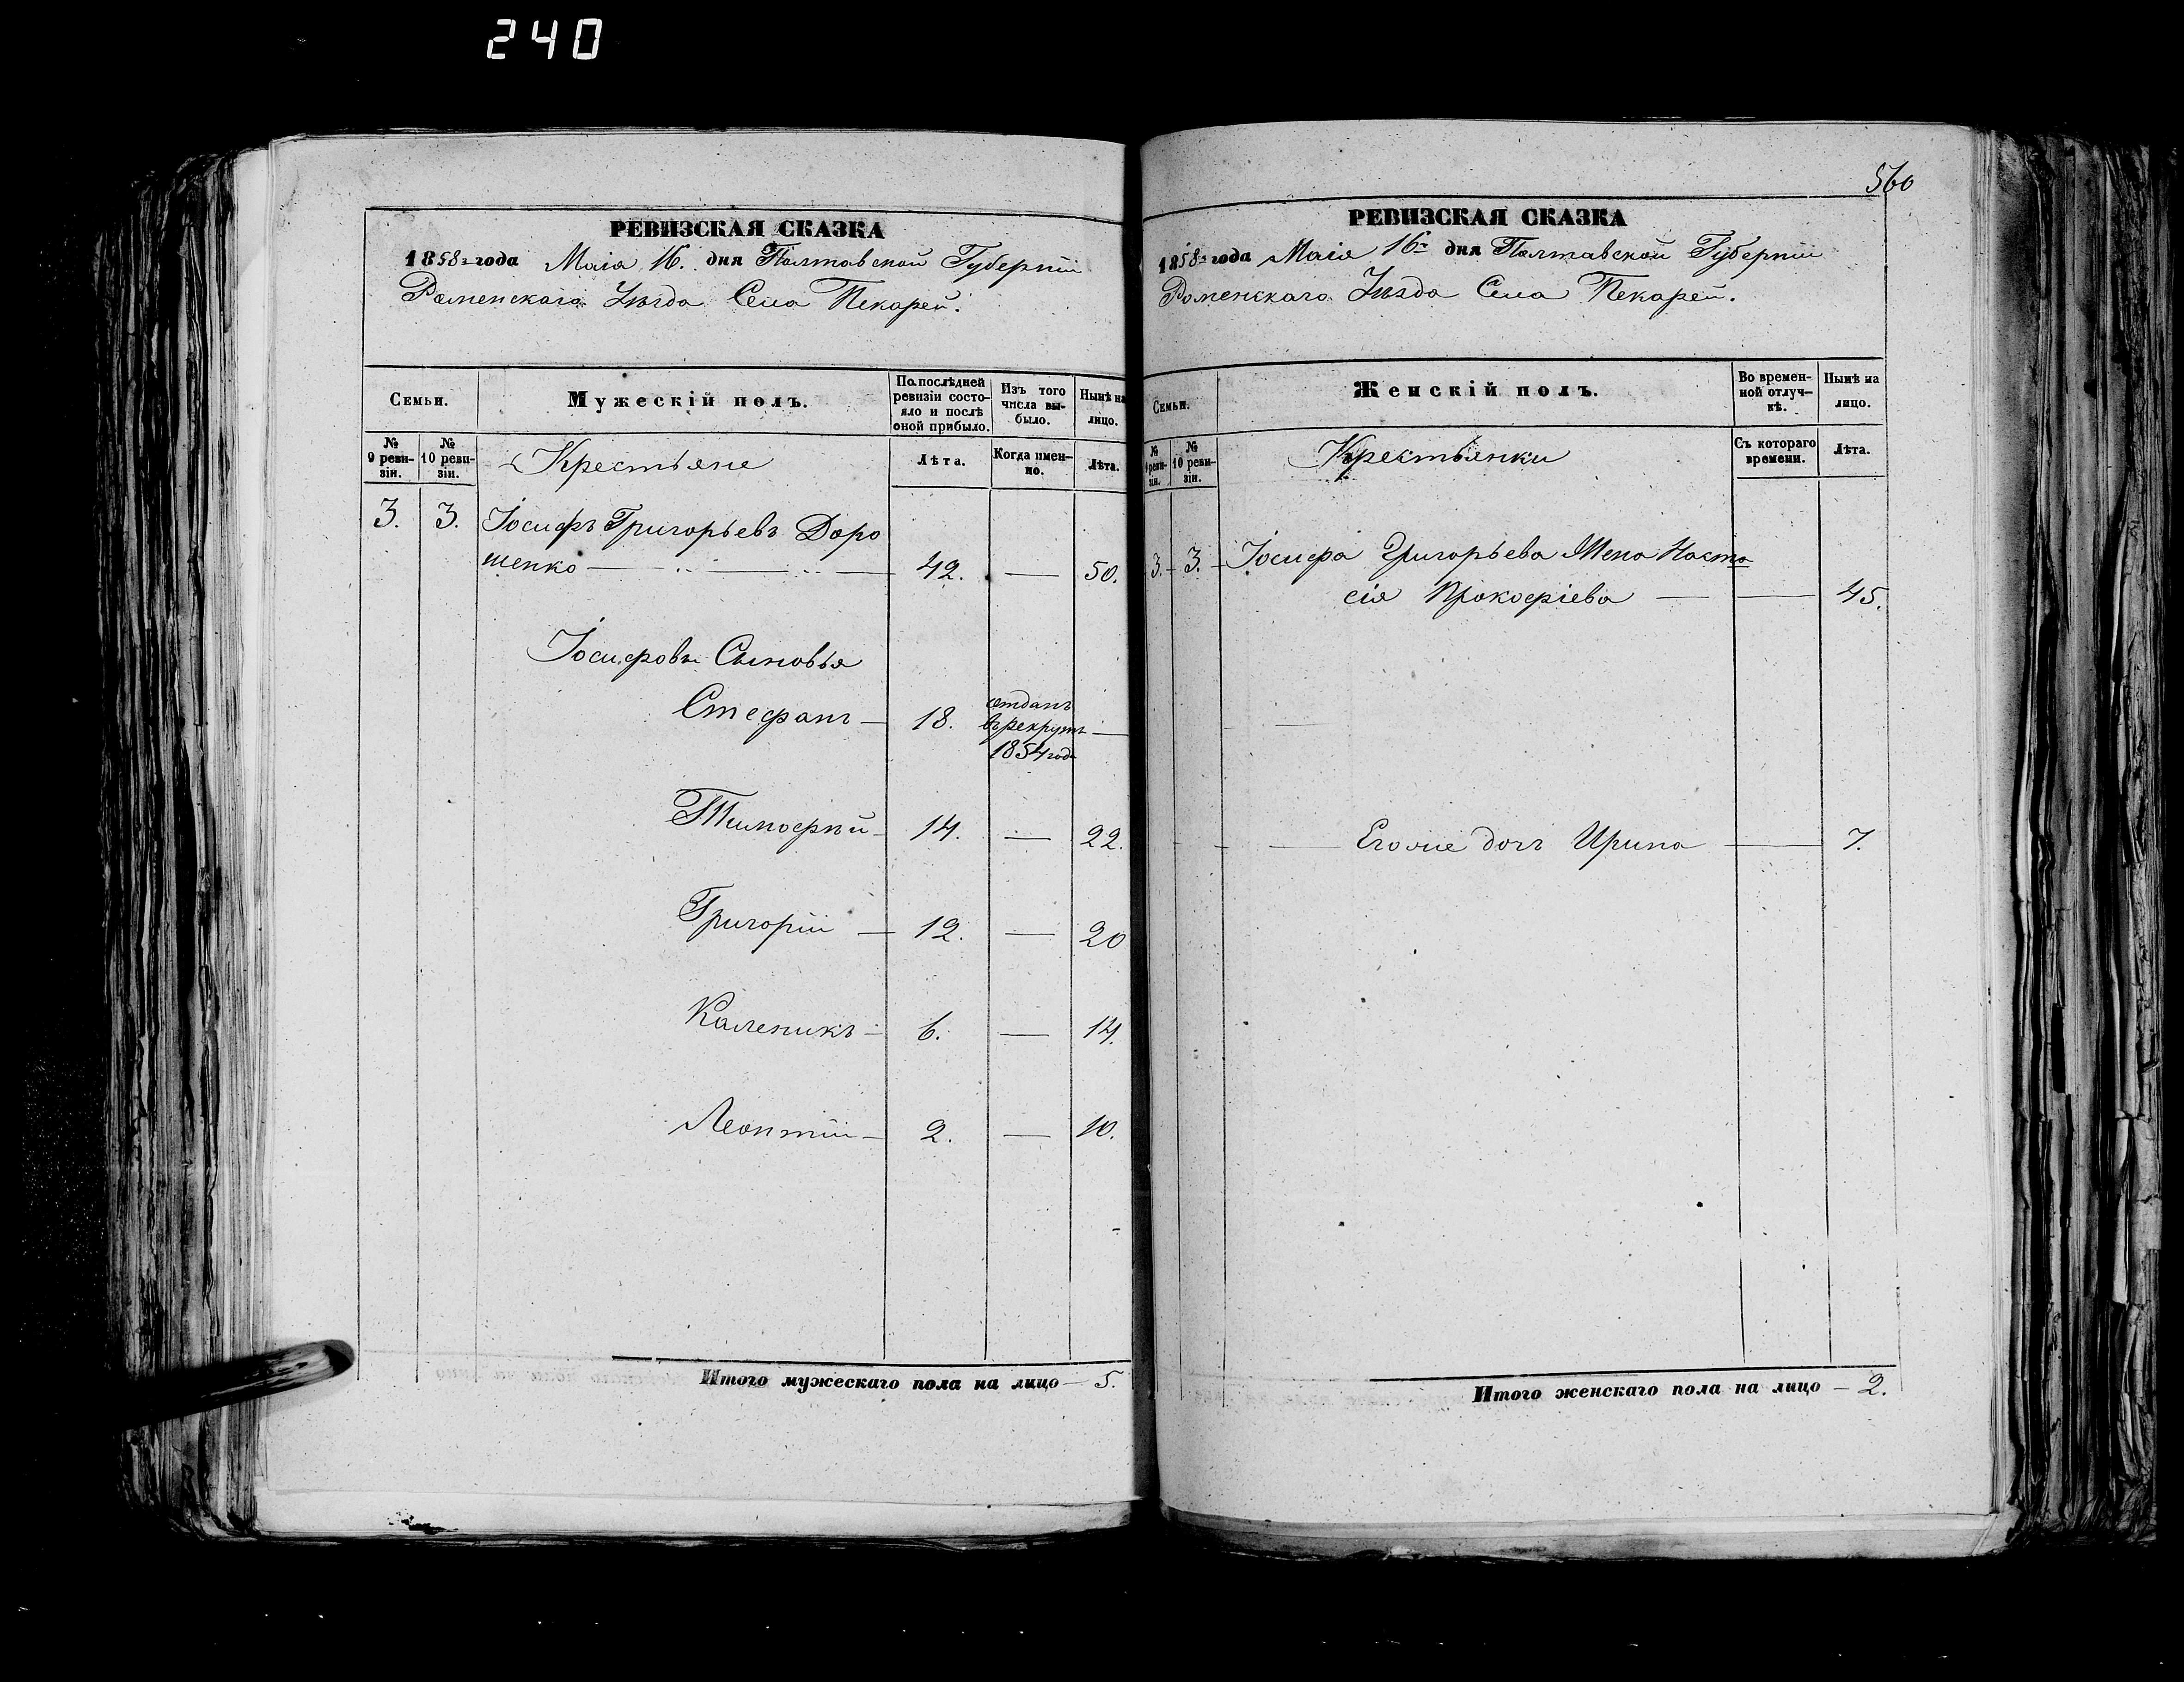 240
560
РЕВИЗСКАЯ СКАЗКА
1858 года Маія 16. дня Полтавской Губерніи
Роменскаго Уѣзда Села Пекарей.
Семьи.
Мужескій полъ.
По послѣдней ревизіи состояло и послѣ оной прибыло.
Изъ того числа выбыло.
Нынѣ на лицо.
№ 9 ревизіи.
№ 10 ревизіи.
Крестьяне
Лѣта.
Когда именно.
Лѣта.
3. 3. Іосифъ Григорьевъ Доро
шенко — 42. — 50.
Іосифовы Сыновья
Стефанъ — 18. отданъ
въ рекруты —
1854 года
Тимофѣй — 14. — 22.
Григорій — 12. — 20
Каленикъ — 6. — 14.
Леонтій — 2. — 10.
Итого мужескаго пола на лицо — 5.
РЕВИЗСКАЯ СКАЗКА
1858 года Маія 16 дня Полтавской Губерніи
Роменскаго Уѣзда Села Пекарей.
Семьи.
Женскій полъ.
Во временной отлучкѣ.
Нынѣ на лицо.
№ 9 ревизіи.
№ 10 ревизіи.
Крестьянки
Съ котораго времени.
Лѣта.
3. 3. Іосифа Григорьева Жена Наста
сія Прокофіева — — 45.
Его же дочь Ирина — 7.
Итого женскаго пола на лицо — 2.